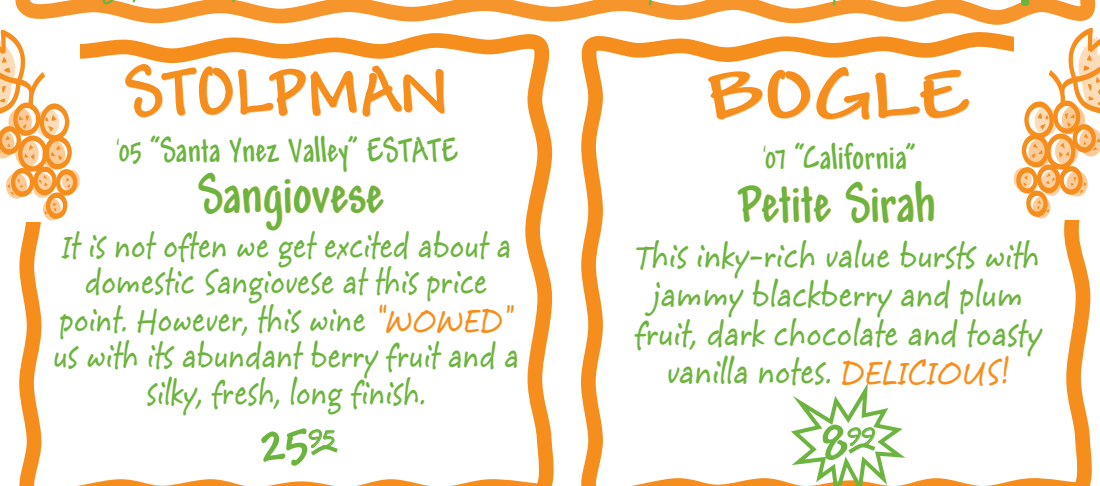 STOLPMAN
'05 "Santa Ynez Valley" ESTATE
Sangiovese
It is not often we get excited about a
domestic Sangiovese at this price
point. However, this wine "WOWED"
us with its abundant berry fruit and a
silky, fresh, long finish.
25⁹⁵
BOGLE
'07 "California"
Petite Sirah
This inky-rich value bursts with
jammy blackberry and plum
fruit, dark chocolate and toasty
vanilla notes. DELICIOUS!
8⁹⁹